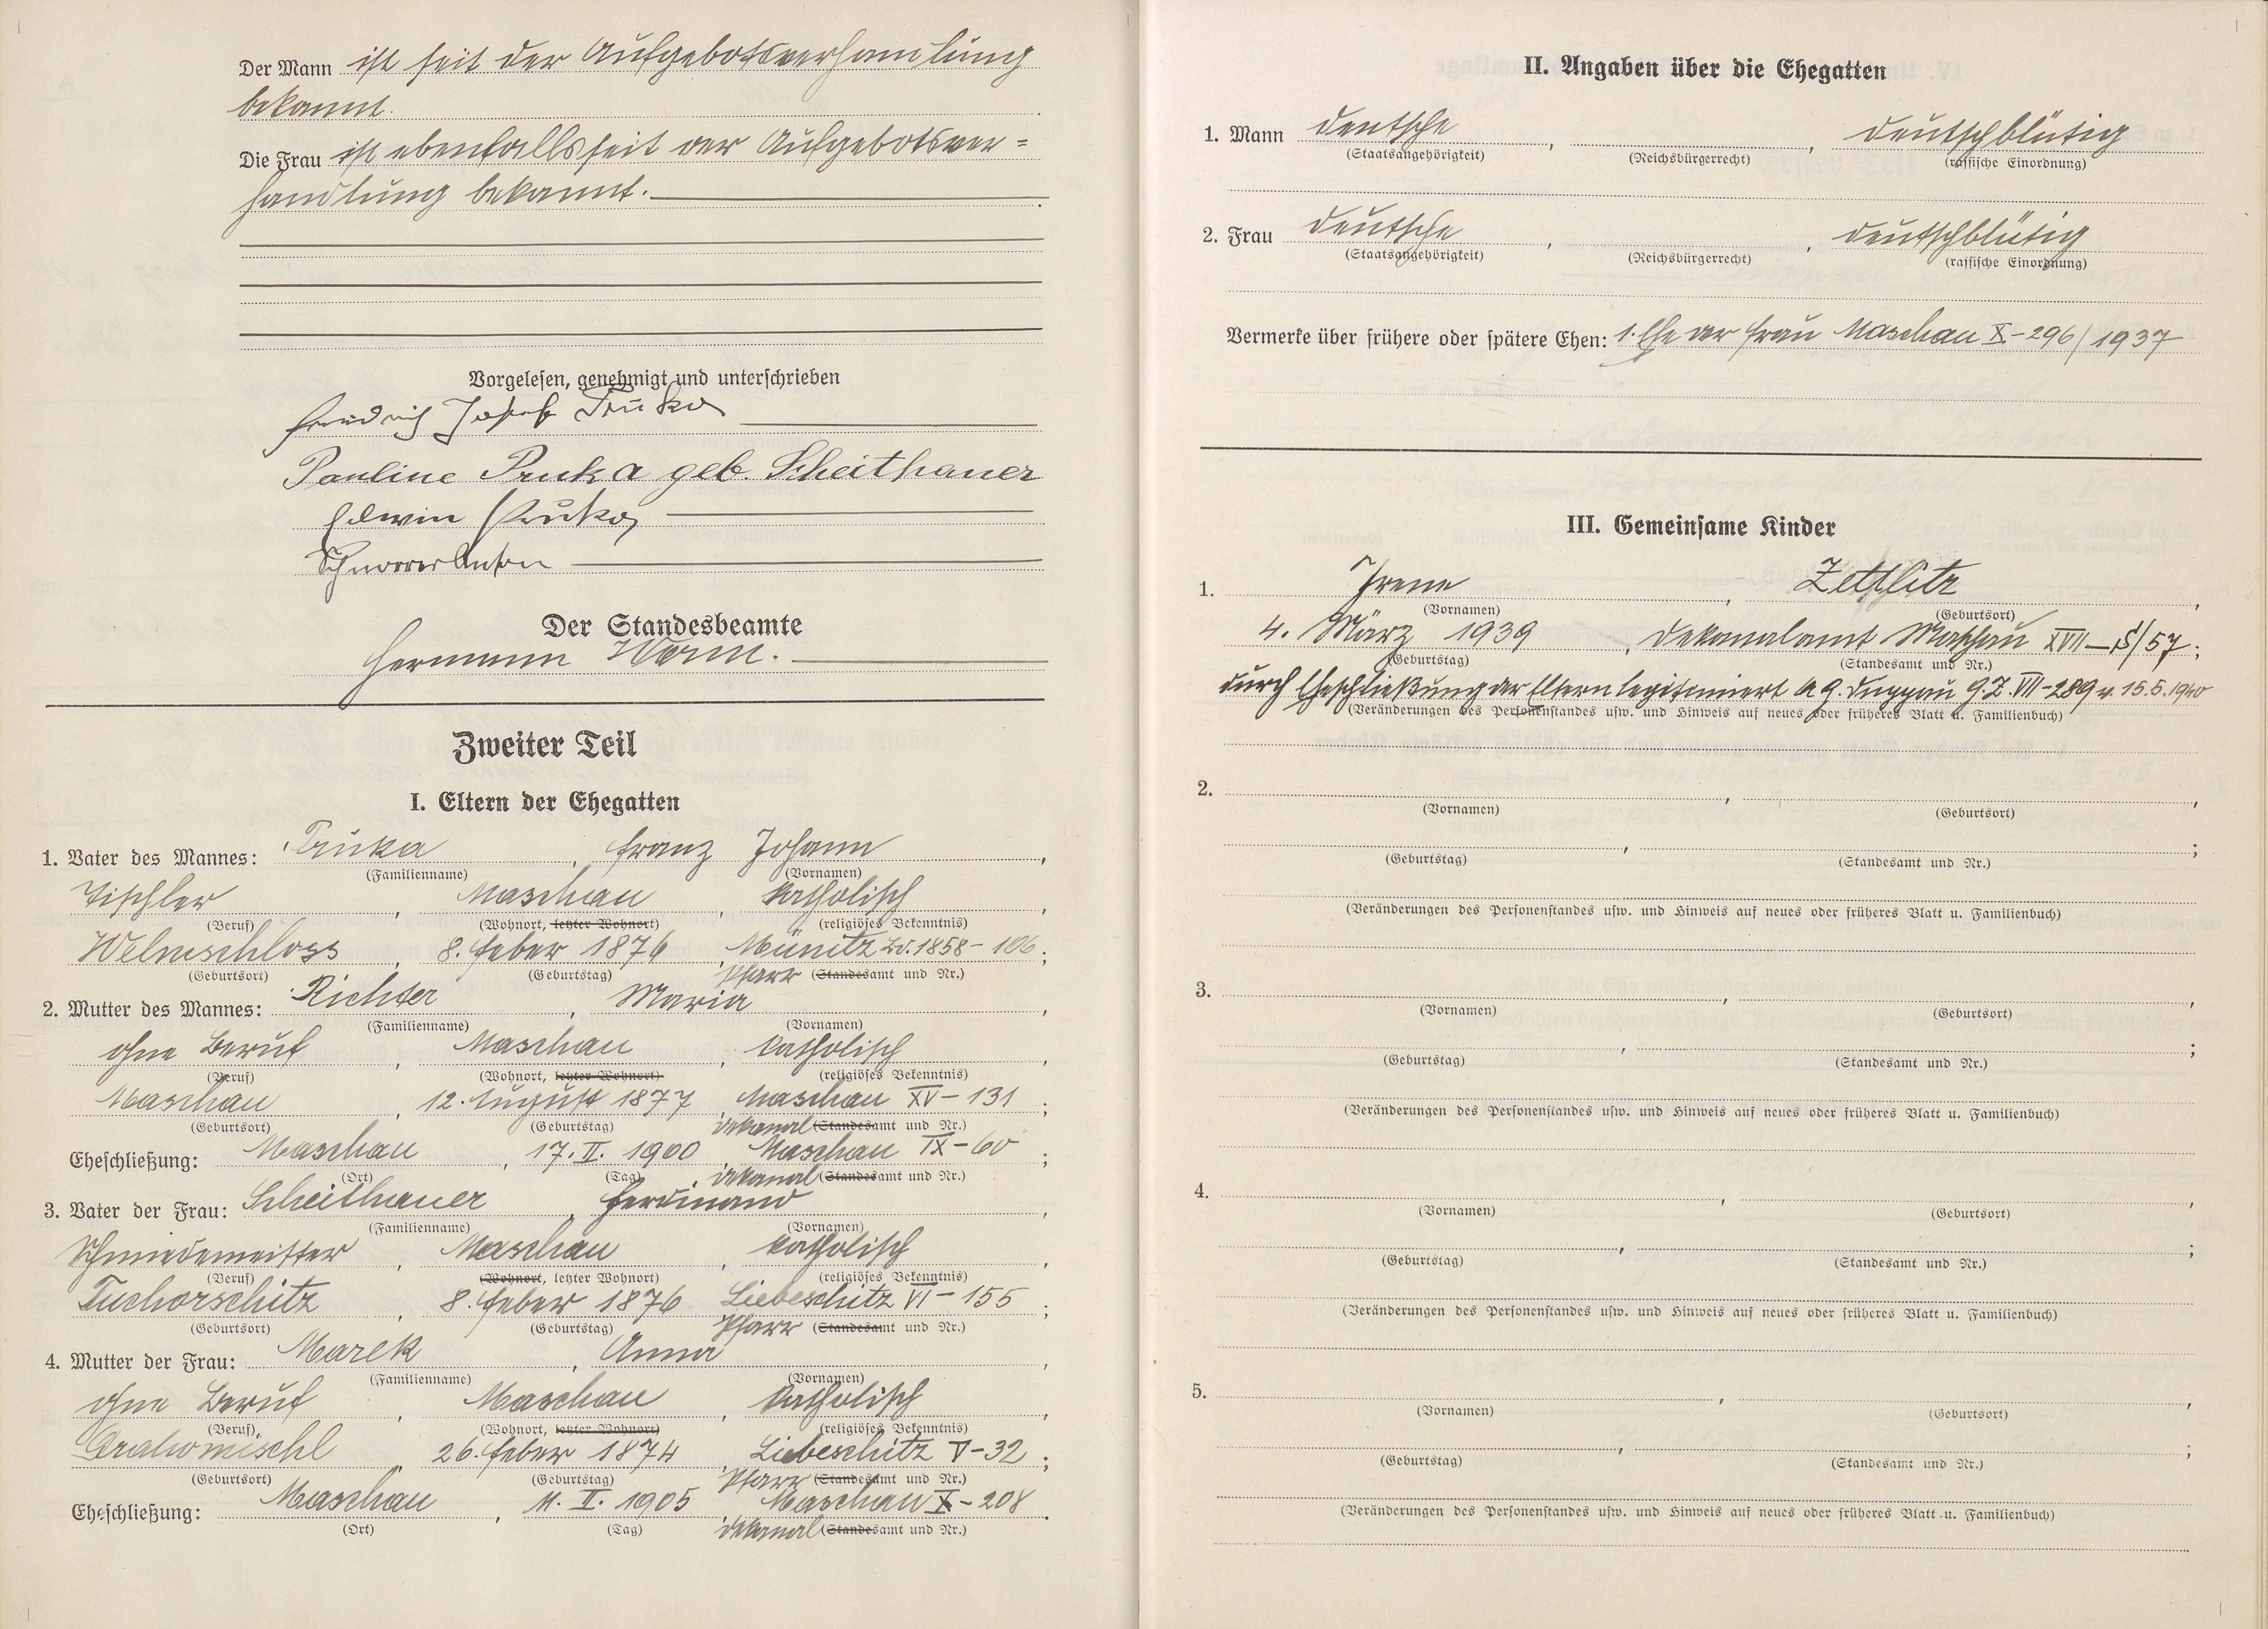 Der Mann ist seit der Aufgebotsverhandlung
bekannt.
Die Frau ist ebenfalls seit der Aufgebotsver=
handlung bekannt.
Vorgelesen, genehmigt und unterschrieben
Friedrich Josef Pruka
Pauline Pruka geb. Scheithauer
Edwin Pruka
Schnorrer Anton
Der Standesbeamte
Hermann
Zweiter Teil
I. Eltern der Ehegatten
1. Vater des Mannes: Pruka, Franz Johann,
(Familienname) (Vornamen)
Tischler, Maschau, katholisch,
(Beruf) (Wohnort, letzter Wohnort) (religiöses Bekenntnis)
Welmschloss, 8. Feber 1876, Münitz 1858-106;
(Geburtsort) (Geburtstag) Pfarr (Standesamt und Nr.)
2. Mutter des Mannes: Richter, Maria,
(Familienname) (Vornamen)
ohne Beruf, Maschau, katholisch,
(Beruf) (Wohnort, letzter Wohnort) (religiöses Bekenntnis)
Maschau, 12. August 1877, Maschau XV-131;
(Geburtsort) (Geburtstag) Dekanal (Standesamt und Nr.)
Eheschließung: Maschau, 17. II. 1900, Maschau IX-60;
(Ort) (Tag) Dekanal (Standesamt und Nr.)
3. Vater der Frau: Scheithauer, Ferdinand,
(Familienname) (Vornamen)
Schmiedemeister, Maschau, katholisch,
(Beruf) (Wohnort, letzter Wohnort) (religiöses Bekenntnis)
Tuchorschitz, 8. Feber 1876, Liebeschitz VI-155;
(Geburtsort) (Geburtstag) Pfarr (Standesamt und Nr.)
4. Mutter der Frau: Marek, Anna,
(Familienname) (Vornamen)
ohne Beruf, Maschau, katholisch,
(Beruf) (Wohnort, letzter Wohnort) (religiöses Bekenntnis)
26. Feber 1874, Liebeschitz V-32;
(Geburtsort) (Geburtstag) Pfarr (Standesamt und Nr.)
Eheschließung: Maschau, 11. II. 1905, Maschau X-208.
(Ort) (Tag) Dekanal (Standesamt und Nr.)
II. Angaben über die Ehegatten
1. Mann deutsche, , deutschblütig
(Staatsangehörigkeit) (Reichsbürgerrecht) (rassische Einordnung)
2. Frau deutsche, , deutschblütig
(Staatsangehörigkeit) (Reichsbürgerrecht) (rassische Einordnung)
Vermerke über frühere oder spätere Ehen: 1. Ehe der Frau Maschau X-296/1937
III. Gemeinsame Kinder
1. Irene, Zettlitz,
(Vornamen) (Geburtsort)
4. März 1939, Dekanalamt Maschau XVII-S/57;
(Geburtstag) (Standesamt und Nr.)
durch Eheschließung der Eltern legitimiert A.G. Duppau G.Z. VII-289 v. 15.5.1940
(Veränderungen des Personenstandes usw. und Hinweis auf neues oder früheres Blatt u. Familienbuch)
2. , ,
(Vornamen) (Geburtsort)
, ;
(Geburtstag) (Standesamt und Nr.)
(Veränderungen des Personenstandes usw. und Hinweis auf neues oder früheres Blatt u. Familienbuch)
3. , ,
(Vornamen) (Geburtsort)
, ;
(Geburtstag) (Standesamt und Nr.)
(Veränderungen des Personenstandes usw. und Hinweis auf neues oder früheres Blatt u. Familienbuch)
4. , ,
(Vornamen) (Geburtsort)
, ;
(Geburtstag) (Standesamt und Nr.)
(Veränderungen des Personenstandes usw. und Hinweis auf neues oder früheres Blatt u. Familienbuch)
5. , ,
(Vornamen) (Geburtsort)
, ;
(Geburtstag) (Standesamt und Nr.)
(Veränderungen des Personenstandes usw. und Hinweis auf neues oder früheres Blatt u. Familienbuch)